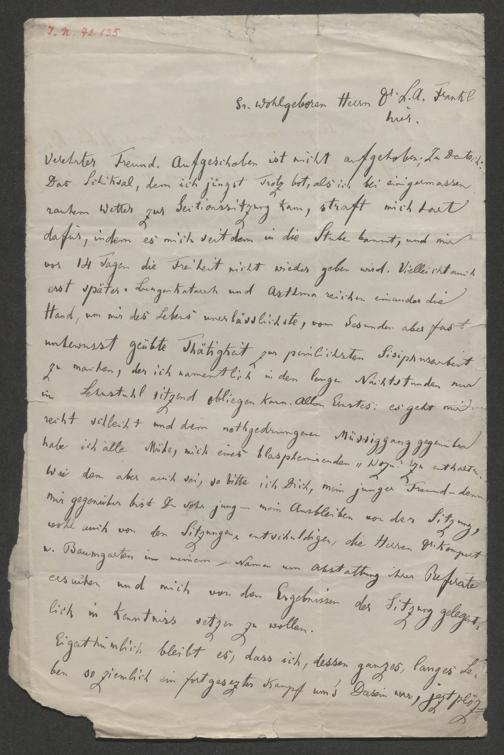 I. N. 72.635
Sr. Wohlgeboren Herrn Dr. L. A. Frankl
hier.
Verehrter Freund. Aufgeschoben ist nicht aufgehoben;
Das Schicksal, dem ich jüngst Trotz bot, als ich bei einigermassen
rauhem Wetter zur Sectionssitzung kam, straft mich hart
dafür, indem es mich seitdem in die Stube bannt, und mir
vor 14 Tagen die Freiheit nicht wieder geben wird. Vielleicht auch
erst später. Lungenkatarrh und Asthma reichen einander die
Hand, um mir des Lebens unerlässlichste, vom Gesunden aber fast
unbewusst geübte Thätigkeit zur peinlichsten Sisiphusarbeit
zu machen, der ich namentlich in den langen Nachtstunden nur
im Lehnstuhl sitzend obliegen kann. Allen Ernstes: es geht mir
recht schlecht und dem nothgedrungenen Müssiggang gegenüber
habe ich alle Mühe, mich eines blasphemirenden „Wozu?“ zu enthalten.
Wie dem aber auch sei, so bitte ich Dich, mein junger Freund – denn
mir gegenüber bist Du sehr jung – mein Ausbleiben von der Sitzung,
wohl auch von den Sitzungen entschuldigen, die Herren Dr. Kompert
u. Baumgarten in meinem Namen um Abstattung ihrer Referate
ersuchen und mich von den Ergebnissen der Sitzung gelegent-
lich in Kenntniss setzen zu wollen.
Eigenthümlich bleibt es, dass ich, dessen ganzes, langes Le-
ben so ziemlich ein fortgesetzter Kampf um's Dasein war, jetzt plötz-